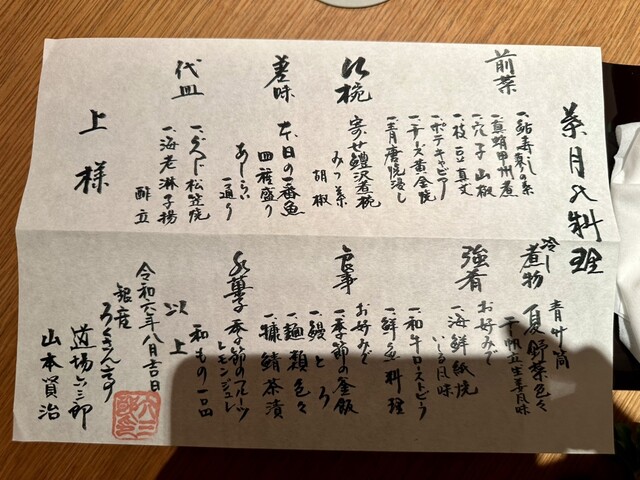 葉月の料理
前菜
一、鮎寿司
一、真蛸甲州煮
一、穴子山椒
一、枝豆真丈
一、ポテキャビア
一、チーズ黄金焼
一、青唐焼浸し
椀
寄せ鱧沢煮椀
みつ葉
胡椒
差味
本日の一番魚
四種盛り
あしらい
一通り
代皿
一、松笠焼
一、海老淋子揚
酢立
上様
冷し
煮物
青竹筒
夏野菜色々
干帆立生姜風味
強肴
お好みで
一、海鮮紙焼
いしる風味
一、和牛ローストビーフ
一、鮮魚料理
食事
お好みで
一、季節の釜飯
一、鰻とろ
一、麺類色々
一、糠鯖茶漬
水菓子
季節のフルーツ
レモンジュレ
和もの一品
以上
令和六年八月吉日
銀座
ろくさん亭
道場六三郎
山本賢治